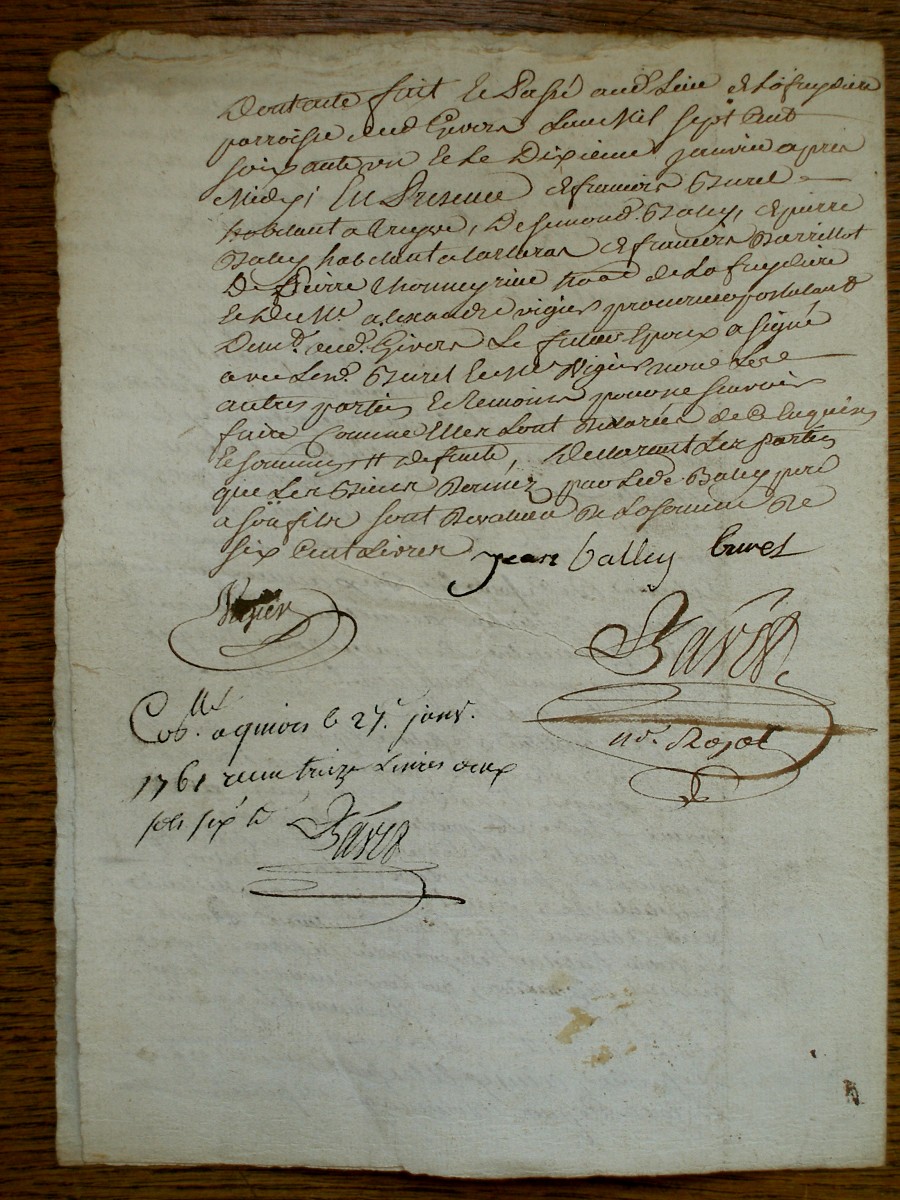 Dont acte fait et Passé aud. Lieu de Lafreydiere
parroisse dud. Givors Lan Mil sept Cent
soixante un et Le Dixieme janvier apres
Midy; En Presence de francois Burel
habitant a Treyve, De Simond Baley, de pierre
Baley habitant a de francois Barrillot
De Pierre de Lafreydiere
et De Me alexandre Vigier procureur postulant
Demt. aud. Givors Le futur Epoux a signé
avec Led. Burel et Me Vigier non Les
autres parties et temoins pour ne sçavoir
faire Comme Elles ont declarées de ce Enquises
et sommés declarant Les parties
que Les Biens Donnez par Led. Baley pere
a son fils sont de valleur de La somme De
six Cent Livres jean balley burel
Vigier
Bavés
nore. Royal
Collé. a givors le 27e. janv.
1761 reçu treize Livres deux
sols six d.
Bavés